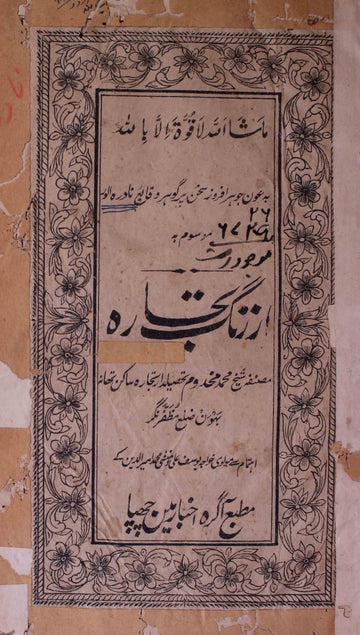 ماشاءاللہ لاقوۃ الا باللہ
بہ عون جوہر افروز سخن پر گوہر وقایع نادرہ
۲۶
۶۷۳۹ موسوم بہ
موجودات
ارژنگ تجارہ
مصنفہ شیخ محمد مخدوم تحصیلدار تجارہ ساکن تھانہ
بہون ضلع مظفر نگر
اہتمام سے خواجہ یوسف علی و منشی محمد امیر الدین کے
مطبع آگرہ اخبار مین چھپا